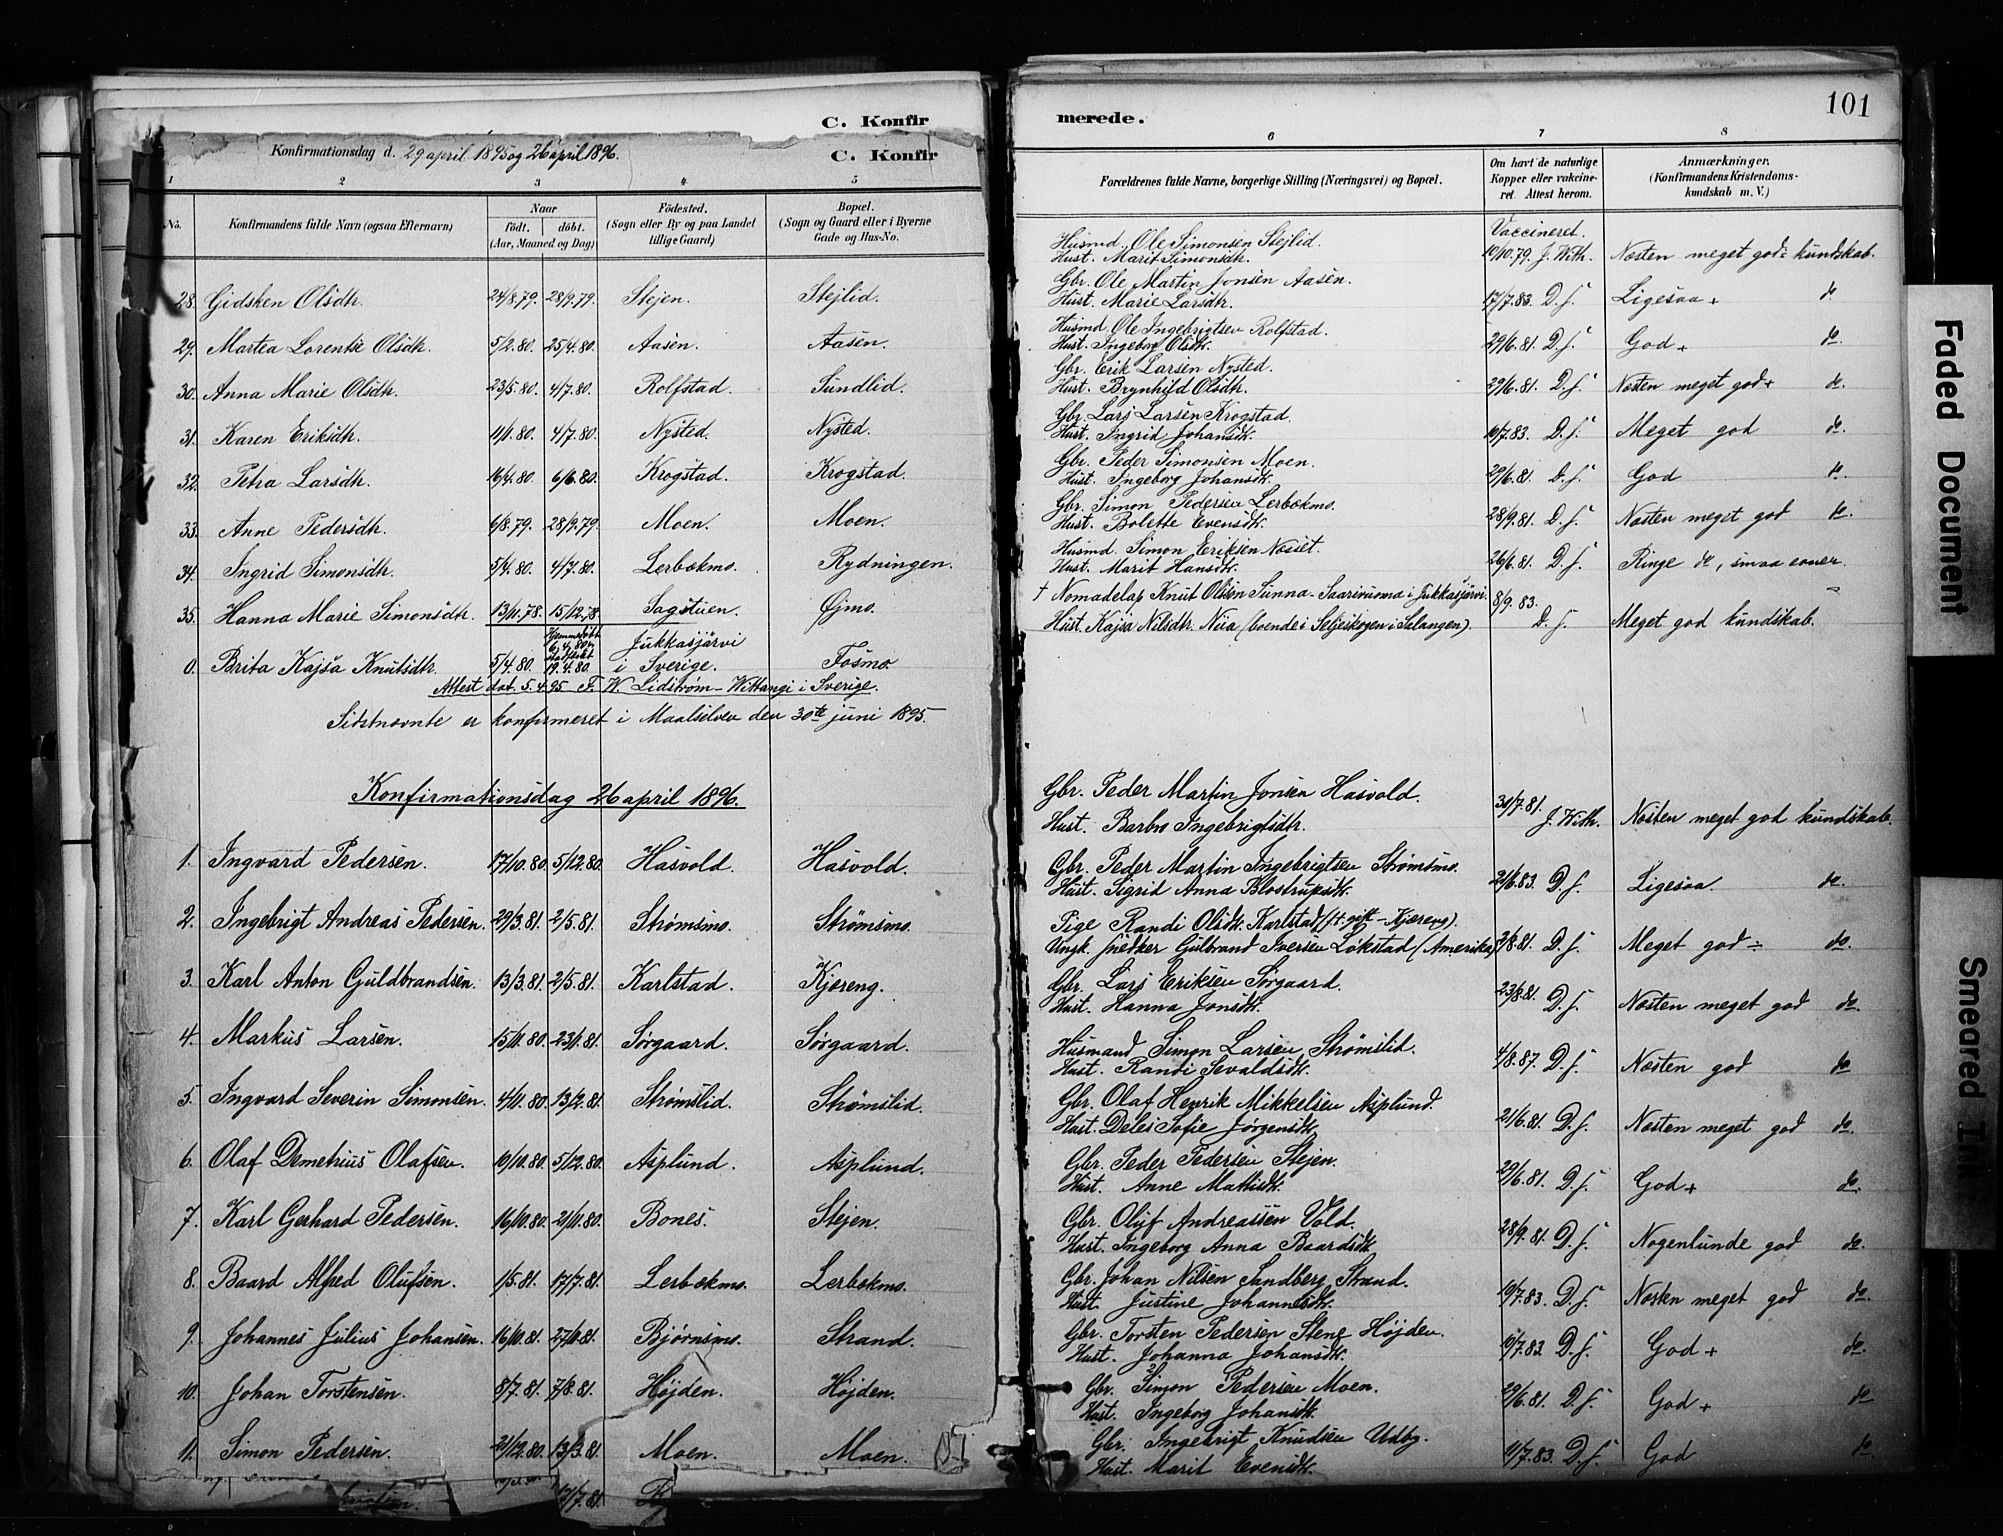 101
C. Konfir
merede.
Konfirmationsdag d. 29 april 1895 og 26 april 1896.
C. Konfir
1 2 3 4 5
6 7 8
No. Konfirmandens fulde Navn (ogsaa Efternavn) Naar født. døbt. (Aar, Maaned og Dag) Fødested. (Sogn eller By og paa Landet tillige Gaard) Bopæl. (Sogn og Gaard eller i Byerne Gade og Hus-No.
Forældrenes fulde Navne, borgerlige Stilling (Næringsvei) og Bopæl. Om havt de naturlige Kopper eller vakcineret. Attest herom. Anmærkninger. (Konfirmandens Kristendomskundskab m. V.)
28. Gidsken Olsdtr. 24/8.79. 28/9.79. Stejen. Stejlid.
29. Martea Lorentse Olsdtr. 5/2.80. 25/4.80. Aasen. Aasen.
30. Anna Marie Olsdtr. 23/5.80. 4/7.80. Rolfstad. Sundlid.
31. Karen Eriksdtr. 11/1.80. 4/7.80. Nysted. Nysted.
32. Petra Larsdtr. 16/4.80. 6/6.80. Krogstad. Krogstad.
33. Anne Pedersdtr. 6/8.79. 28/9.79. Moen. Moen.
34. Ingrid Simonsdtr. 5/4.80. 4/7.80. Lerbækmo. Rydningen.
35. Hanna Marie Simonsdtr. 13/11.78. 15/12.78 Sagstuen. Øjmo.
Hjemmedøbt 6/4 80 Jukkasjärvi
0. Brita Kajsa Knutsdtr. 5/4.80. 19.4.80. i Sverige. Fosmo
Attest dat. 5.4.95 F. W. Lidstrøm - Wittangi i Sverige.
Sidstnævnte er konfirmeret i Maalselven den 30te juni 1895.
Konfirmationsdag 26 april 1896.
1. Ingvard Pedersen. 17/10.80. 5/12.80. Hasvold. Hasvold.
2. Ingebrigt Andreas Pedersen. 29/3.81. 2/5.81. Strømsmo. Strømsmo.
3. Karl Anton Guldbrandsen. 13/3.81. 2/5.81. Karlstad. Kjæreng.
4. Markus Larsen. 15/11.80. 23/1.81. Sørgaard. Sørgaard.
5. Ingvard Severin Simonsen. 4/11.80. 13/2.81. Strømslid. Strømslid.
6. Olaf Demetrius Olafsen. 10/10.80. 5/12.80. Asplund. Asplund.
7. Karl Gerhard Pedersen. 16/10.80. 21/11.80. Bones. Stejen.
8. Baard Alfred Olufsen. 1/5.81. 17/7.81. Lerbækmo. Lerbækmo.
9. Johannes Julius Johansen. 16/10.81. 27/10.81. Bjørnsmo. Strand.
10. Johan Torstensen. 8/7.81. 7/8.81. Højden. Højden.
11. Simon Pedersen. 21/12.80. 13/3.81. Moen. Moen.
17/7.81.
Vaccineret.
Husmd. Ole Simonsen Stejlid.
Hust. Marit Simonsdtr. 10/10.79. J. With. Næsten meget god - kundskab.
Gbr. Ole Martin Jonsen Aasen.
Hust. Marie Larsdtr. 17/7.83. D. s. Ligesaa + do
Husmd. Ole Ingebrigtsen Rolfstad.
Hust. Ingeborg Olsdtr. 29/6.81. D. s. God + do.
Gbr. Erik Larsen Nysted.
Hust. Brynhild Olsdtr. 29/6.81. D. s. Næsten meget god + do.
Gbr. Lars Larsen Krogstad.
Hust. Ingrid Johansdtr. 10/7.83. D. s. Meget god do.
Gbr. Peder Simonsen Moen.
Hust. Ingeborg Johansdtr. 29/6.81. D. s. God do.
Gbr. Simon Pedersen Lerbækmo.
Hust. Bolette Evensdtr. 28/9.81. D. s. Næsten meget god do.
Husmd. Simon Eriksen Næset.
Hust. Marit Hansdtr. 26/6.81. D. s. Ringe do, smaa evner.
† Nomadelap Knut Olsson Sunna - Saarivuoma i Jukkasjärvi. 8/9.83.
Hust. Kajsa Nilsdtr. Nia (boende i Seljeskogen i Salangen). D. s. Meget god kundskab.
Gbr. Peder Martin Jonsen Hasvold. 30/7.81.
Hust. Barbro Ingebrigtsdtr. J. With. Næsten meget god kundskab.
Gbr. Peder Martin Ingebrigtsen Strømsmo.
Hust. Sigrid Anna Blostrupsdtr. 21/6.83. D. s. Ligesaa. do.
Pige Randi Olsdtr. Karlstad (ft. gift - Kjæreng).
Ungk. snedker Gulbrand Iversen Løkstad (Amerika) 2/8.81. D. s. Meget god ÷ do.
Gbr. Lars Eriksen Sørgaard.
Hust. Hanna Jonsdtr. 23/8.81. D. s. Næsten meget god do.
Husmand Simon Larsen Strømslid.
Hust. Randi Sevaldsdtr. 4/8.87. D. s. Næsten god do
Gbr. Olaf Henrik Mikkelsen Asplund.
Hust. Deles Sofie Jørgensdtr. 21/6.81. D. s. Næsten meget god do.
Gbr. Peder Pedersen Stejen.
Hust. Anne Mathisdtr. 29/6.81. D. s. God + do.
Gbr. Oluf Andreassen Vold.
Hust. Ingeborg Anna Baardsdtr. 28/9.81. D. s. Nogenlunde god do.
Gbr. Johan Nilsen Sandberg Strand.
Hust. Justine Johannesdtr. 10/7.83. D. s. Næsten meget god do.
Gbr. Torsten Pedersen Steng Højden.
Hust. Johanna Johansdtr. 10/7.83 D. s. God + do.
Gbr. Simon Pedersen Moen.
Hust. Ingeborg Johansdtr. 29/6.81. D. s. God + do
Gbr. Ingebrigt Knudsen Udby.
Hust. Marit Evensdtr. 11/7.83. D. s. God do
Faded Document
Smeared Ink